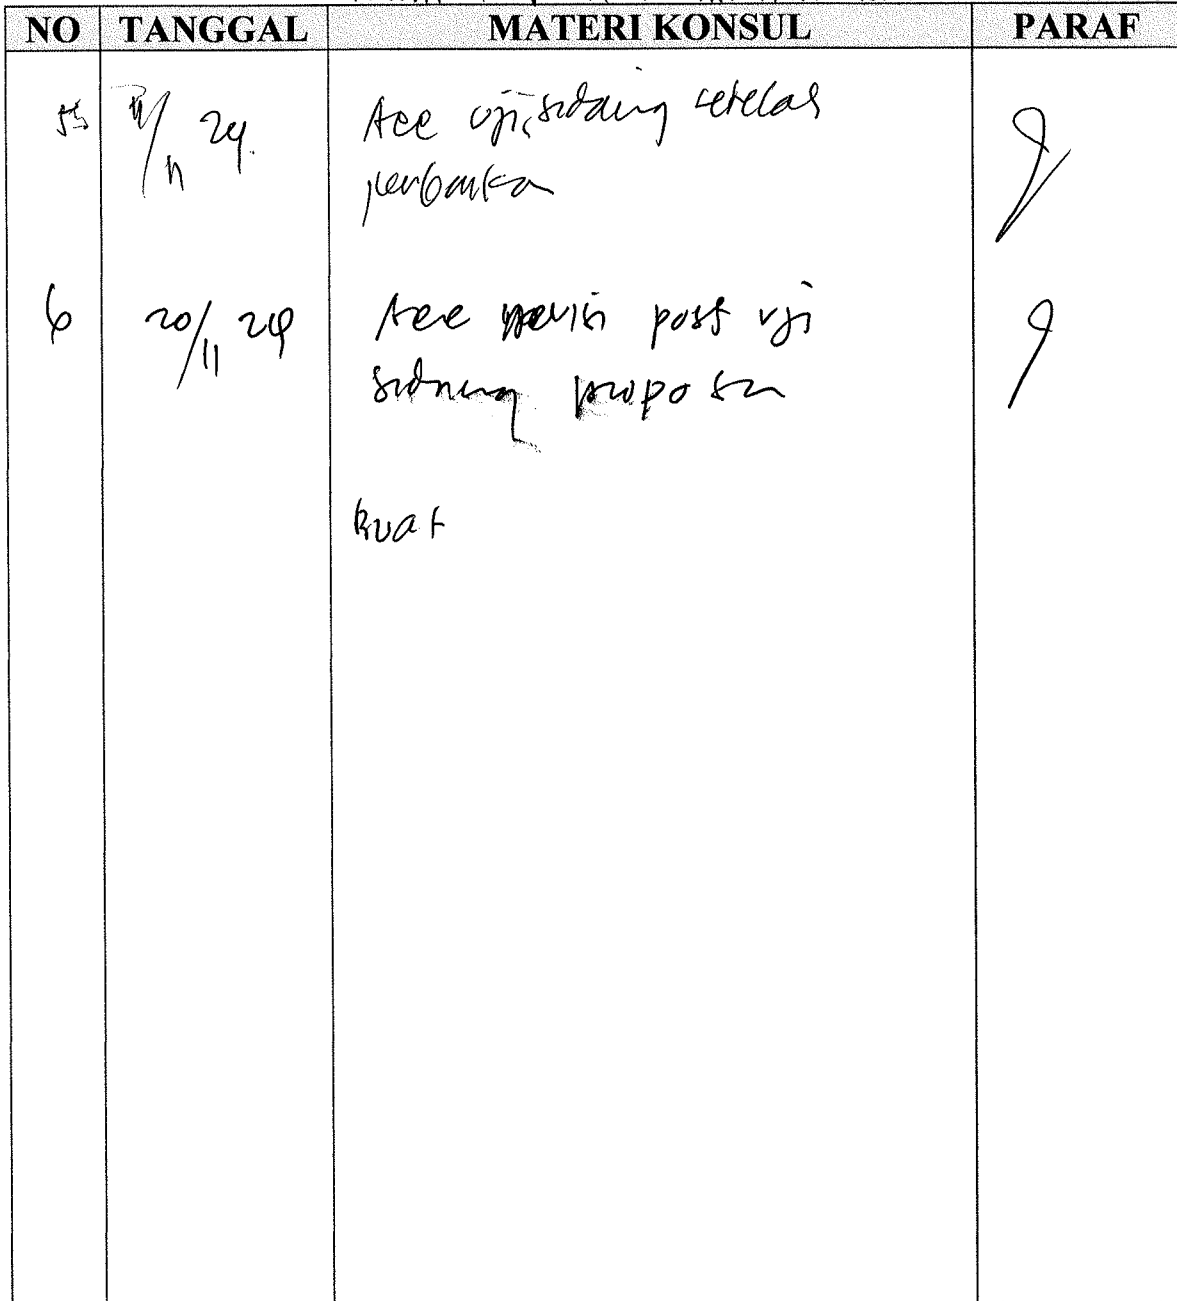 NO TANGGAL MATERI KONSUL PARAF
5 /11 24. Acc uji sidang setelah
perbaikan
6 20/11 24 Acc revisi post uji
sidang proposal
kuat